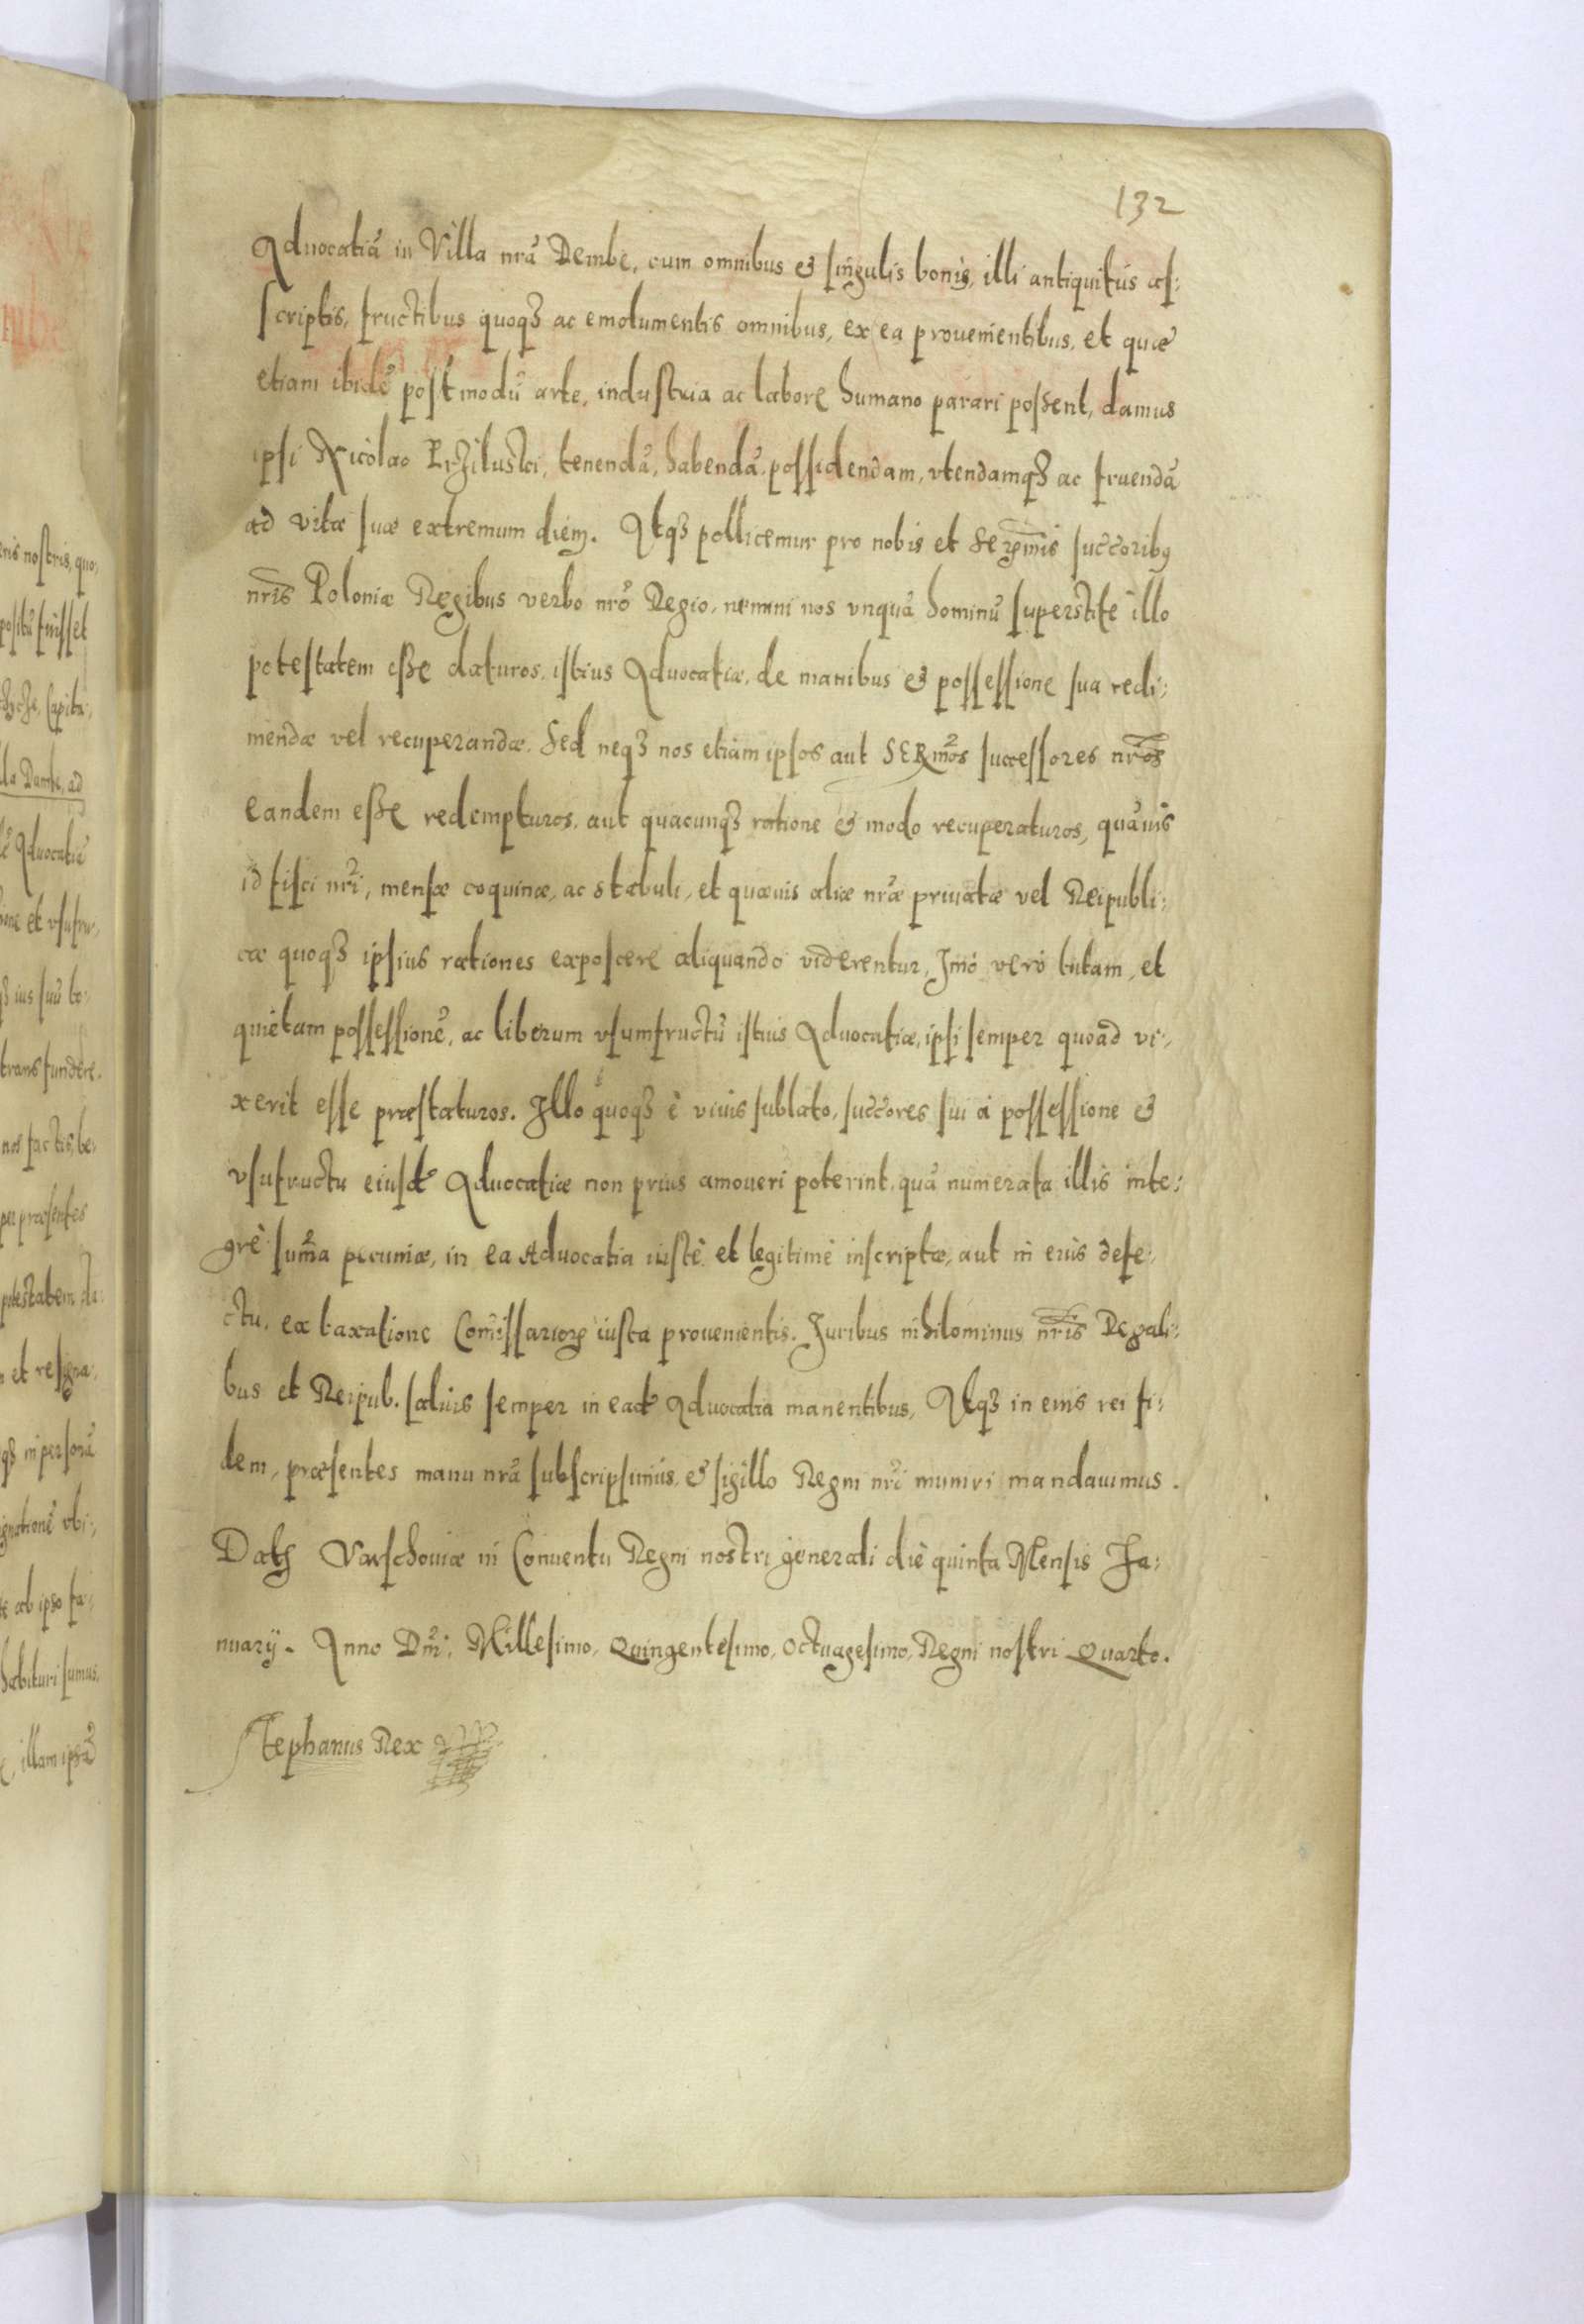 132
Aduocatiã in Villa nrã Dembe, cum omnibus & singulis bonis, illi antiquitus as:
scriptis, fructibus quoqȝ ac emolumentis omnibus, ex ea prouenientibus, et quæ
etiam ibidẽ postmodũ arte, industria ac labore humano parari possent, damus
ipsi Nicolao tenendã, habendã, possidendam, vtendamqȝ ac fruendã
ad vitæ suæ extremum diem. Atqȝ pollicemur pro nobis et Serẽmis succ̃oribꝰ
nrĩs Poloniæ Regibus verbo nrõ Regio, nemini nos vnquã hominũ superstite illo
potestatem esse daturos, istius Aduocatiæ, de manibus & possessione sua redi:
mendæ vel recuperandæ. Sed neqȝ nos etiam ipsos aut SERm̃os successores nrõs
eandem esse redempturos, aut quacunqȝ ratione & modo recuperaturos, quãuis
id fisci nrĩ, mensæ coquinæ, ac stabuli, et quæuis aliæ nræ̃ priuatæ vel Reipubli:
cæ quoqȝ ipsius rationes exposcere aliquando viderentur, Imò verò tutam, et
quietam possessionẽ, ac liberum vsumfructũ istius Aduocatiæ, ipsi semper quoad vi:
xerit esse præstaturos. Illo quoqȝ è viuis sublato, succ̃ores sui à possessione &
vsufructu eiusd̃ Aduocatiæ non prius amoueri poterint, quã numerata illis inte:
grè sum̃a pecuniæ, in ea Aduocatia iustè et legitimè inscriptæ, aut in eius defe:
ctu, ex taxatione Com̃issarioꝝ iusta prouenientis. Iuribus nihilominus nrĩs Regali:
bus et Reipub. saluis semper in ead̃ Aduocatia manentibus, Atqȝ in eius rei fi:
dem, præsentes manu nrã subscripsimus, & sigillo Regni nrĩ muniri mandauimus.
Datꝭ Varschouiæ in Conuentu Regni nostri generali die quinta Mensis Ja:
nuarij. Anno Dm̃i: Millesimo, Quingentesimo, Octuagesimo, Regni nostri Quarto.
Stephanus Rex